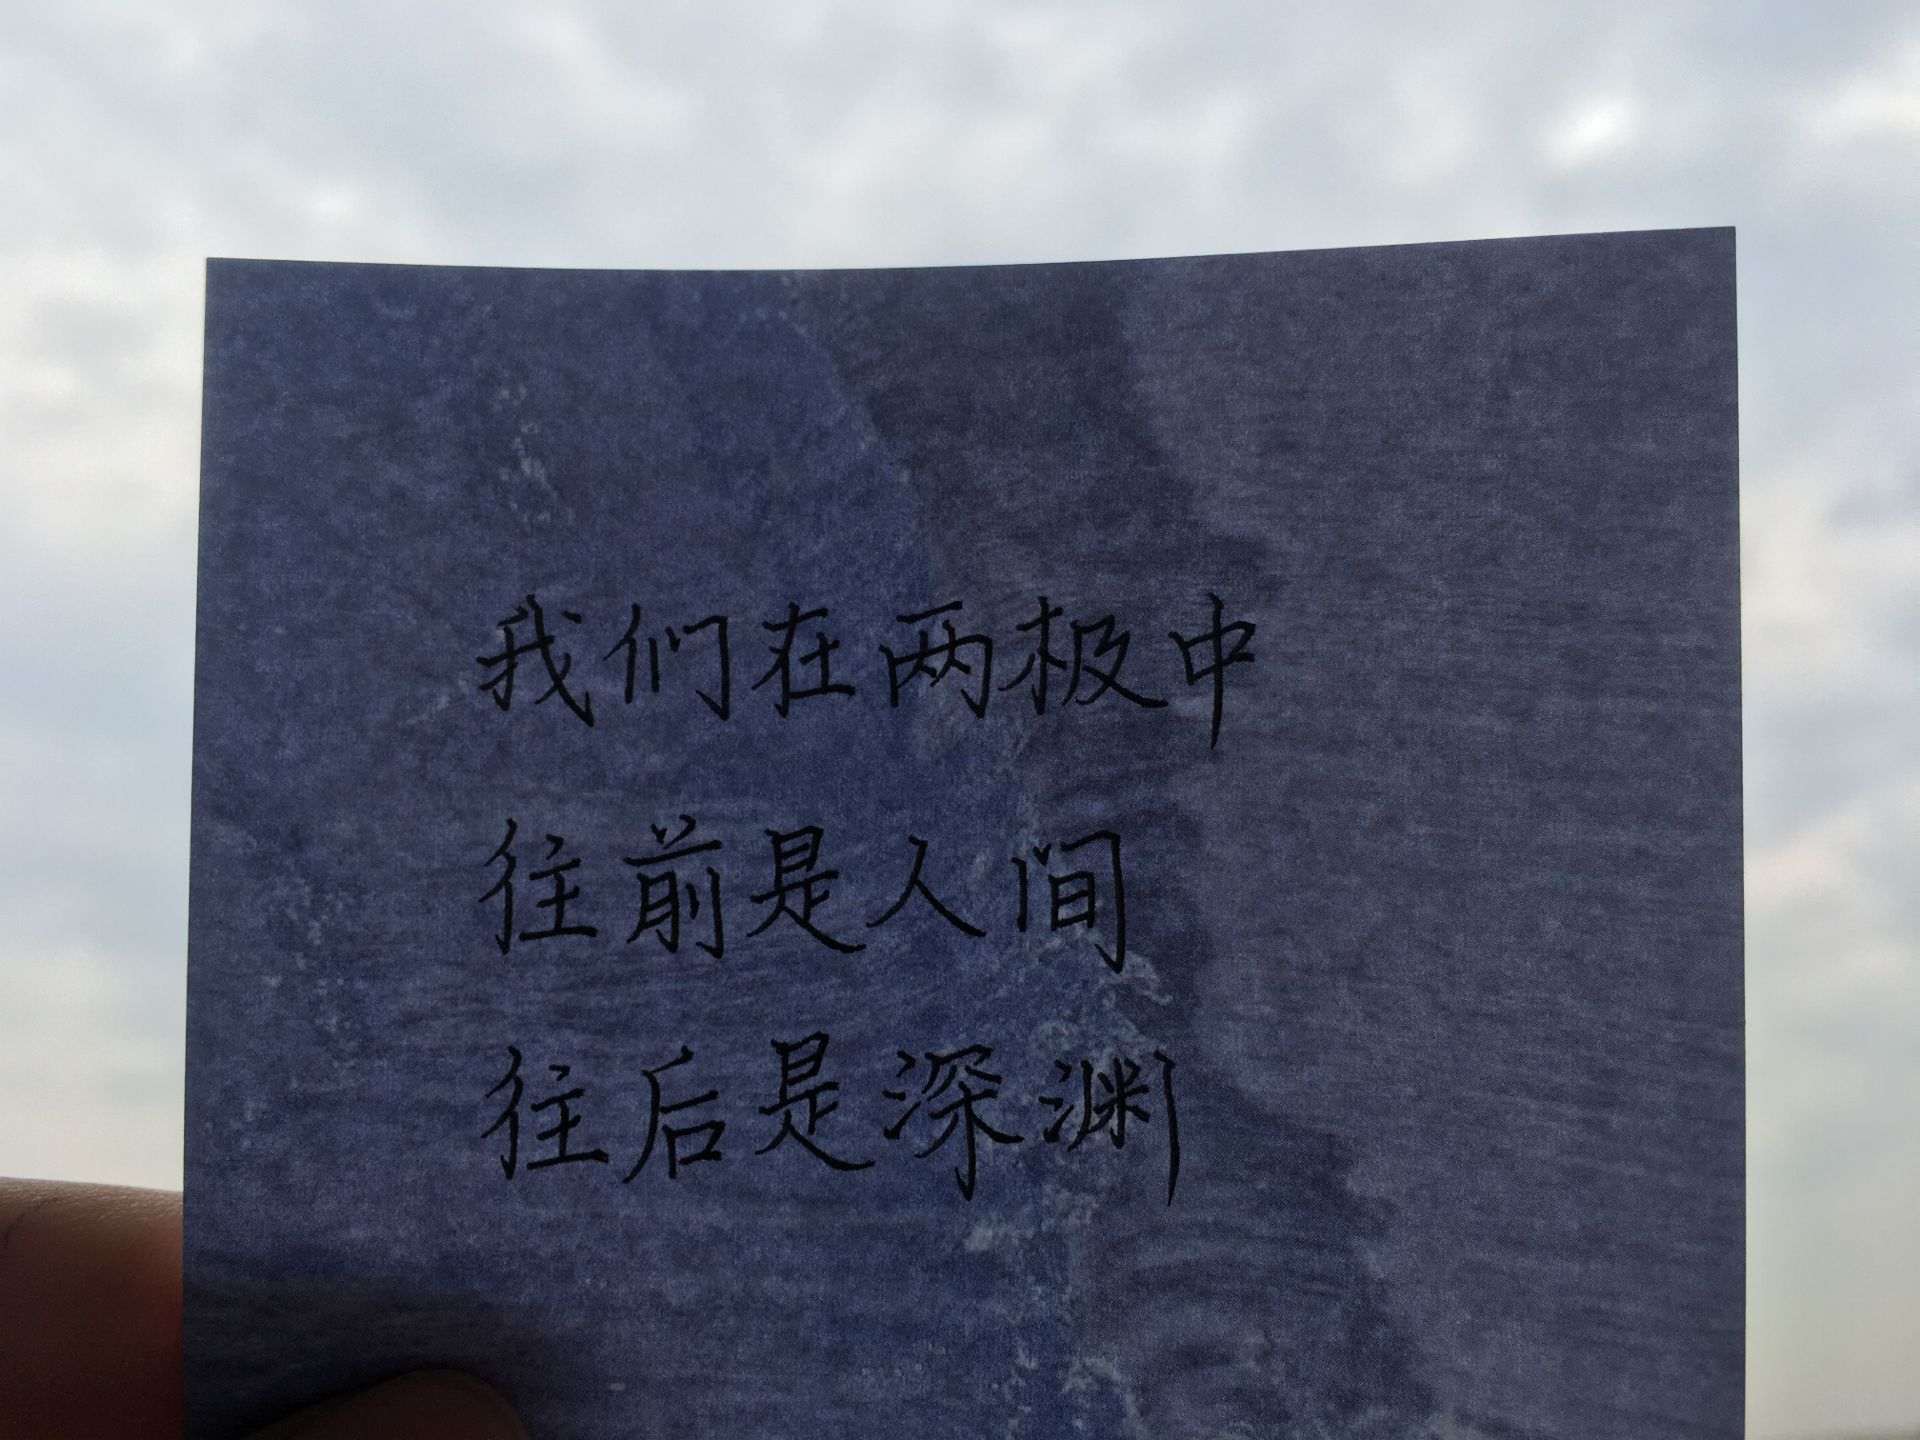 我们在两极中
往前是人间
往后是深渊